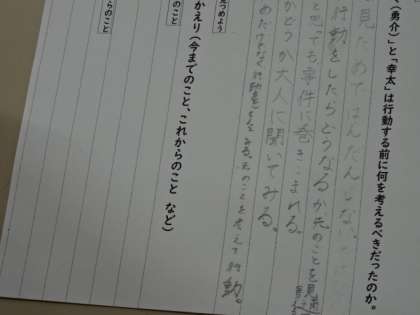 （勇介）」と「幸太」は行動する前に何を考えるべきだったのか。
見ためではんだんしない
行動をしたらどうなるか先のことを見通
と思っても事件に巻きこまれる。
かどうか大人に聞いてみる。
めだけでなく行動を
みる。先のことを考えて行動。
つめよう
かえり（今までのこと、これからのこと など）
のこと
らのこと